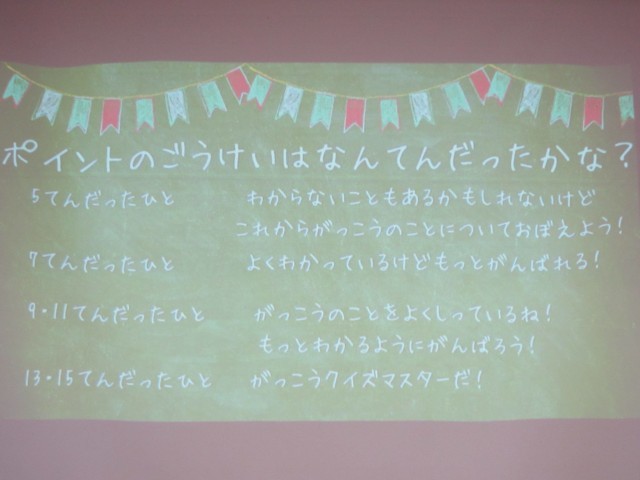 ポイントのごうけいはなんてんだったかな？
5てんだったひと わからないこともあるかもしれないけど
これからがっこうのことについておぼえよう！
7てんだったひと よくわかっているけどもっとがんばれる！
9・11てんだったひと がっこうのことをよくしっているね！
もっとわかるようにがんばろう！
13・15てんだったひと がっこうクイズマスターだ！